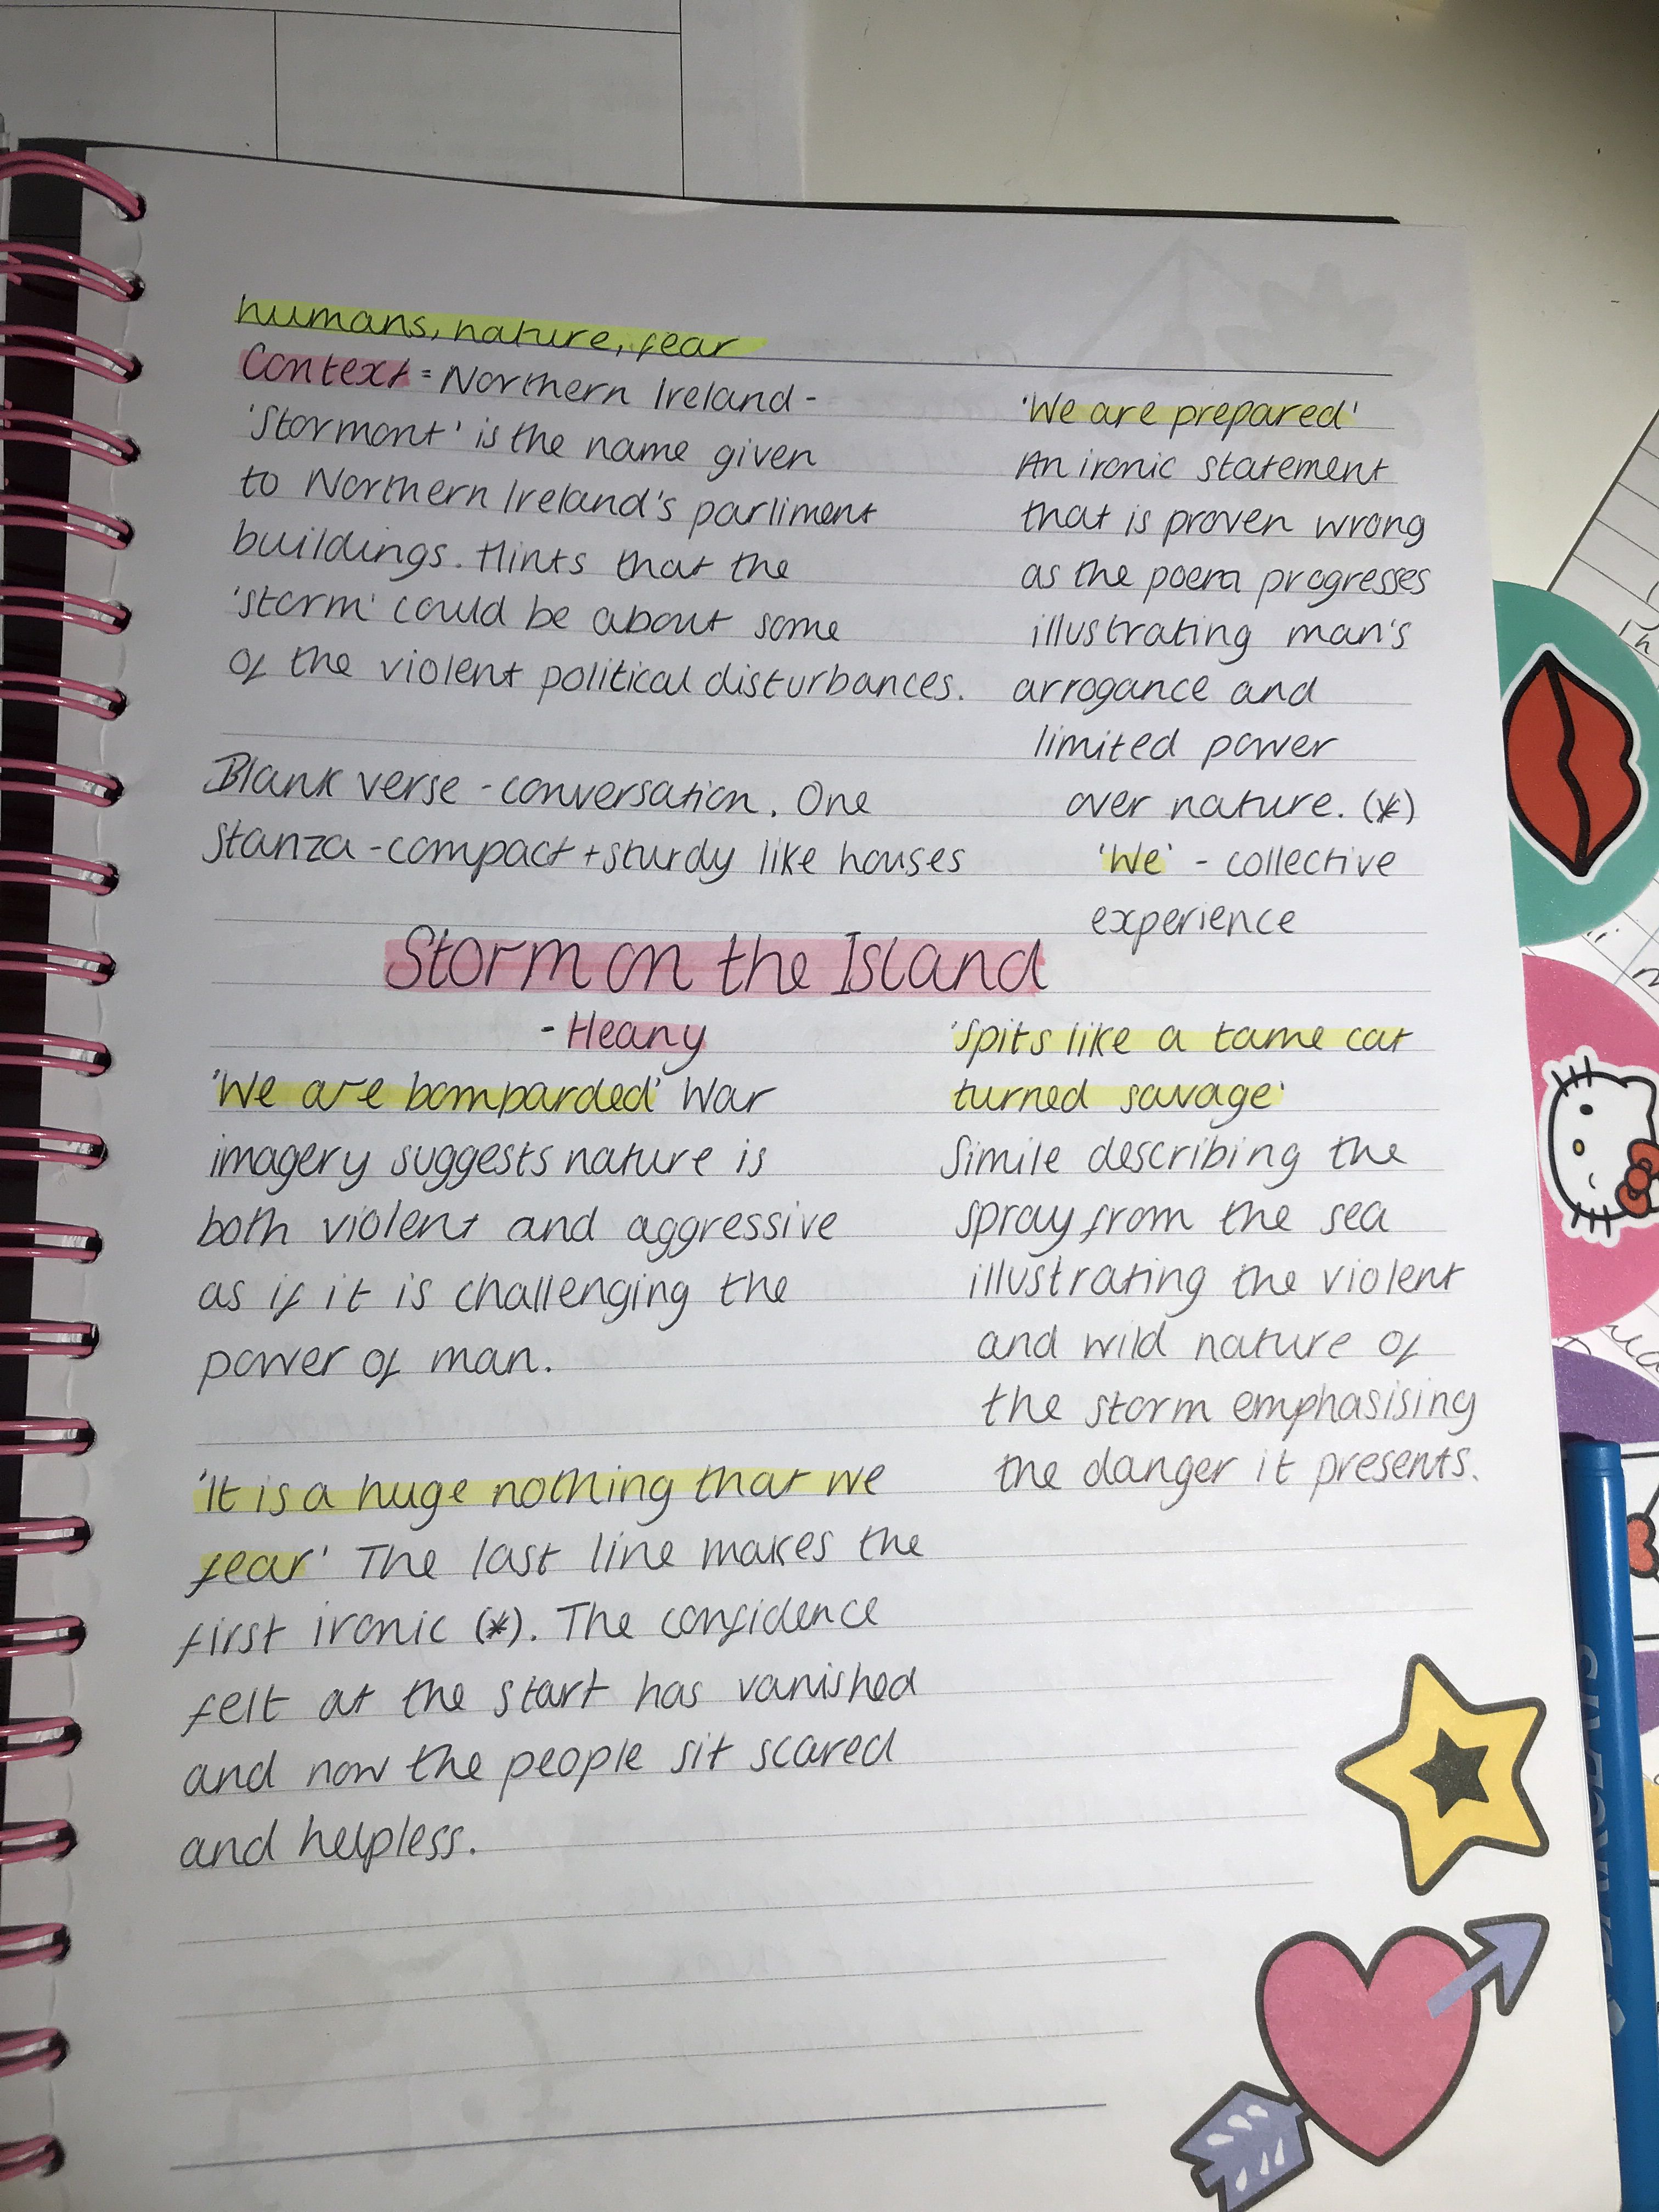 humans, nature, fear
Context = Northern Ireland -
'Stormont' is the name given
to Northern Ireland's parliment
buildings. Hints that the
'storm' could be about some
of the violent political disturbances.
Blank verse - conversation. One
stanza - compact + sturdy like houses
'We are prepared'
An ironic statement
that is proven wrong
as the poem progresses
illustrating man's
arrogance and
limited power
over nature. (*)
'We' - collective
experience
Storm on the Island
- Heany
'We are bomparded' War
imagery suggests nature is
both violent and aggressive
as if it is challenging the
power of man.
'It is a huge nothing that we
fear' The last line makes the
first ironic (*). The confidence
felt at the start has vanished
and now the people sit scared
and helpless.
'Spits like a tame cat
turned savage'
Simile describing the
spray from the sea
illustrating the violent
and wild nature of
the storm emphasising
the danger it presents.